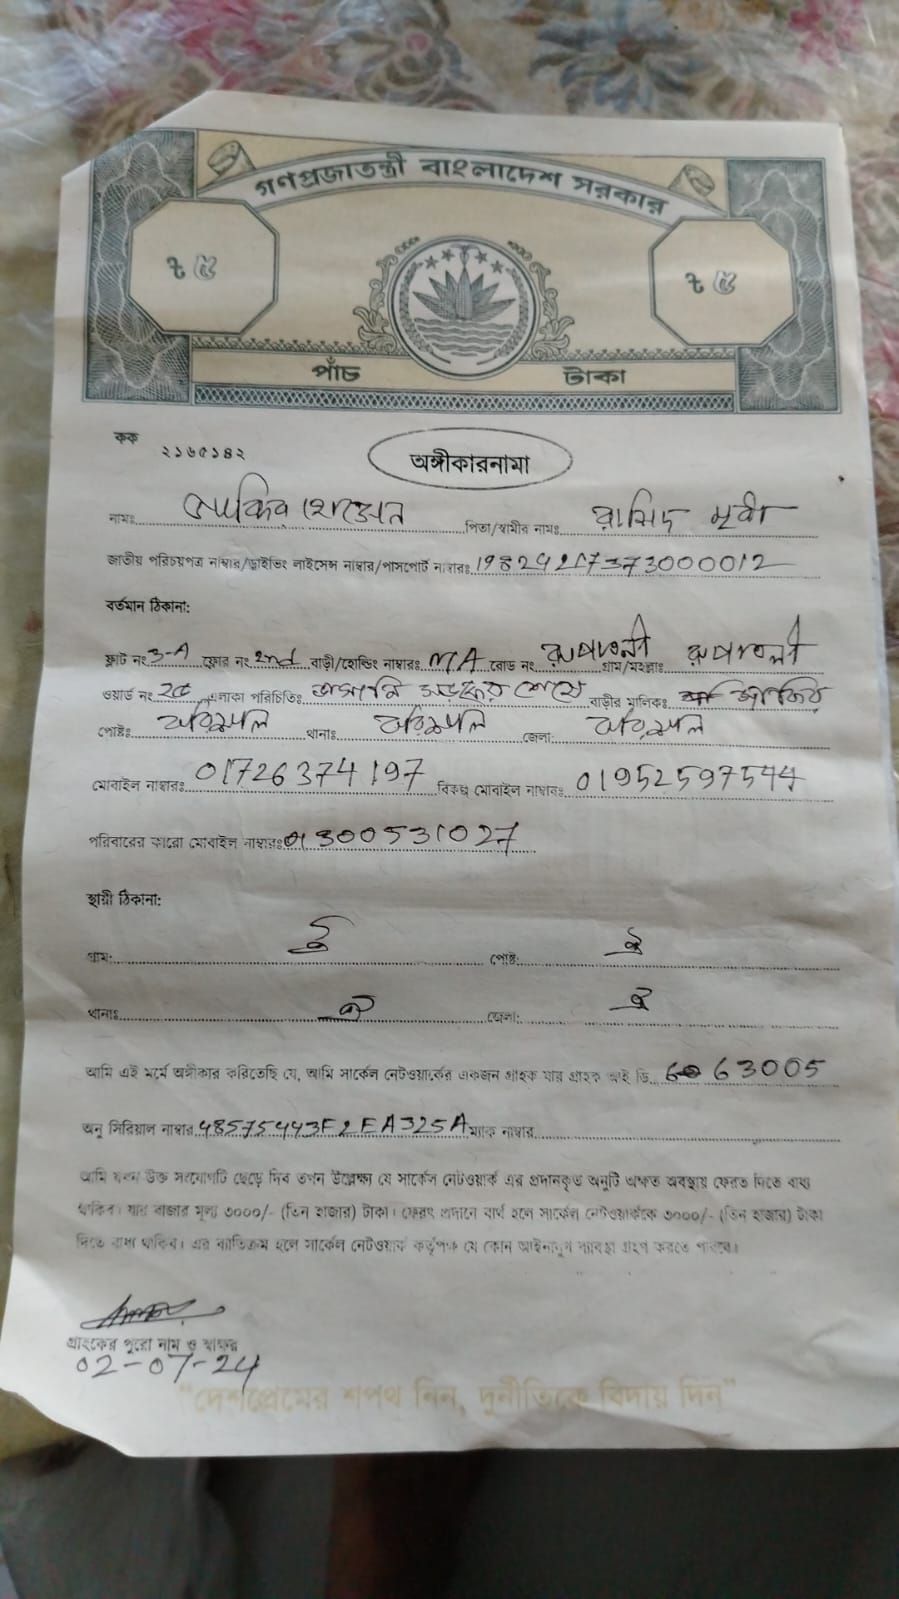 গণপ্রজাতন্ত্রী বাংলাদেশ সরকার
৳ ৫ ৳ ৫
পাঁচ টাকা
কক ২১৬৫১৪২
অঙ্গীকারনামা
নামঃ হোসেন পিতা/স্বামীর নামঃ রাসিদ মৃধা
জাতীয় পরিচয়পত্র নাম্বার/ড্রাইভিং লাইসেন্স নাম্বার/পাসপোর্ট নাম্বারঃ
বর্তমান ঠিকানা:
ফ্লাট নং 3-A ফ্লোর নং 2nd বাড়ী/হোল্ডিং নাম্বারঃ NA রোড নং রুপাতলী গ্রাম/মহল্লাঃ রুপাতলী
ওয়ার্ড নং 25 এলাকা পরিচিতিঃ সড়কের শেষে বাড়ীর মালিকঃ
পোষ্টঃ বরিশাল থানাঃ বরিশাল জেলা: বরিশাল
মোবাইল নাম্বারঃ 01726374197 বিকল্প মোবাইল নাম্বারঃ 01952597544
পরিবারের কারো মোবাইল নাম্বারঃ 01300531027
স্থায়ী ঠিকানা:
গ্রাম: ঐ পোষ্ট: ঐ
থানাঃ ঐ জেলা: ঐ
আমি এই মর্মে অঙ্গীকার করিতেছি যে, আমি সার্কেল নেটওয়ার্কের একজন গ্রাহক যার গ্রাহক আই ডি 63005
অনু সিরিয়াল নাম্বার 48575443F2EA325A ম্যাক নাম্বার
আমি যখন উক্ত সংযোগটি ছেড়ে দিব তখন উল্লেক্ষ্য যে সার্কেল নেটওয়ার্ক এর প্রদানকৃত অনুটি অক্ষত অবস্থায় ফেরত দিতে বাধ্য
থাকিব। যার বাজার মূল্য ৩০০০/- (তিন হাজার) টাকা। ফেরৎ প্রদানে ব্যর্থ হলে সার্কেল নেটওয়ার্ককে ৩০০০/- (তিন হাজার) টাকা
দিতে বাধ্য থাকিব। এর ব্যতিক্রম হলে সার্কেল নেটওয়ার্ক কর্তৃপক্ষ যে কোন আইনানুগ ব্যবস্থা গ্রহণ করতে পারবে।
গ্রাহকের পুরো নাম ও স্বাক্ষর
02-07-24
"দেশপ্রেমের শপথ নিন, দুর্নীতিকে বিদায় দিন"